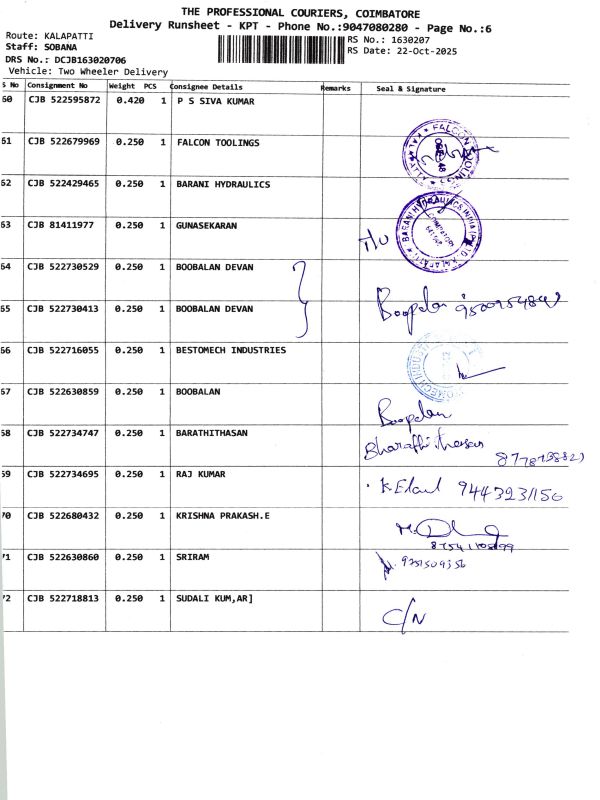 THE PROFESSIONAL COURIERS, COIMBATORE
Delivery Runsheet - KPT - Phone No.:9047080280 - Page No.:6
Route: KALAPATTI
RS No.: 1630207
Staff: SOBANA
RS Date: 22-Oct-2025
DRS No.: DCJB163020706
Vehicle: Two Wheeler Delivery
S No Consignment No Weight PCS Consignee Details Remarks Seal & Signature
60 CJB 522595872 0.420 1 P S SIVA KUMAR
61 CJB 522679969 0.250 1 FALCON TOOLINGS
62 CJB 522429465 0.250 1 BARANI HYDRAULICS
63 CJB 81411977 0.250 1 GUNASEKARAN
64 CJB 522730529 0.250 1 BOOBALAN DEVAN
65 CJB 522730413 0.250 1 BOOBALAN DEVAN Boopalan
66 CJB 522716055 0.250 1 BESTOMECH INDUSTRIES
67 CJB 522630859 0.250 1 BOOBALAN Boopalan
68 CJB 522734747 0.250 1 BARATHITHASAN Bharathithasan
69 CJB 522734695 0.250 1 RAJ KUMAR 9443231156
70 CJB 522680432 0.250 1 KRISHNA PRAKASH.E
71 CJB 522630860 0.250 1 SRIRAM 9751509356
72 CJB 522718813 0.250 1 SUDALI KUM,AR] C/N